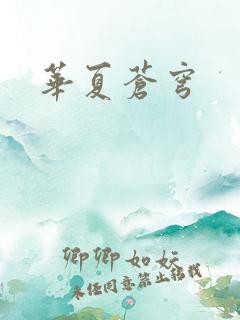 華夏蒼穹
卿卿如妘
未经同意禁止转载